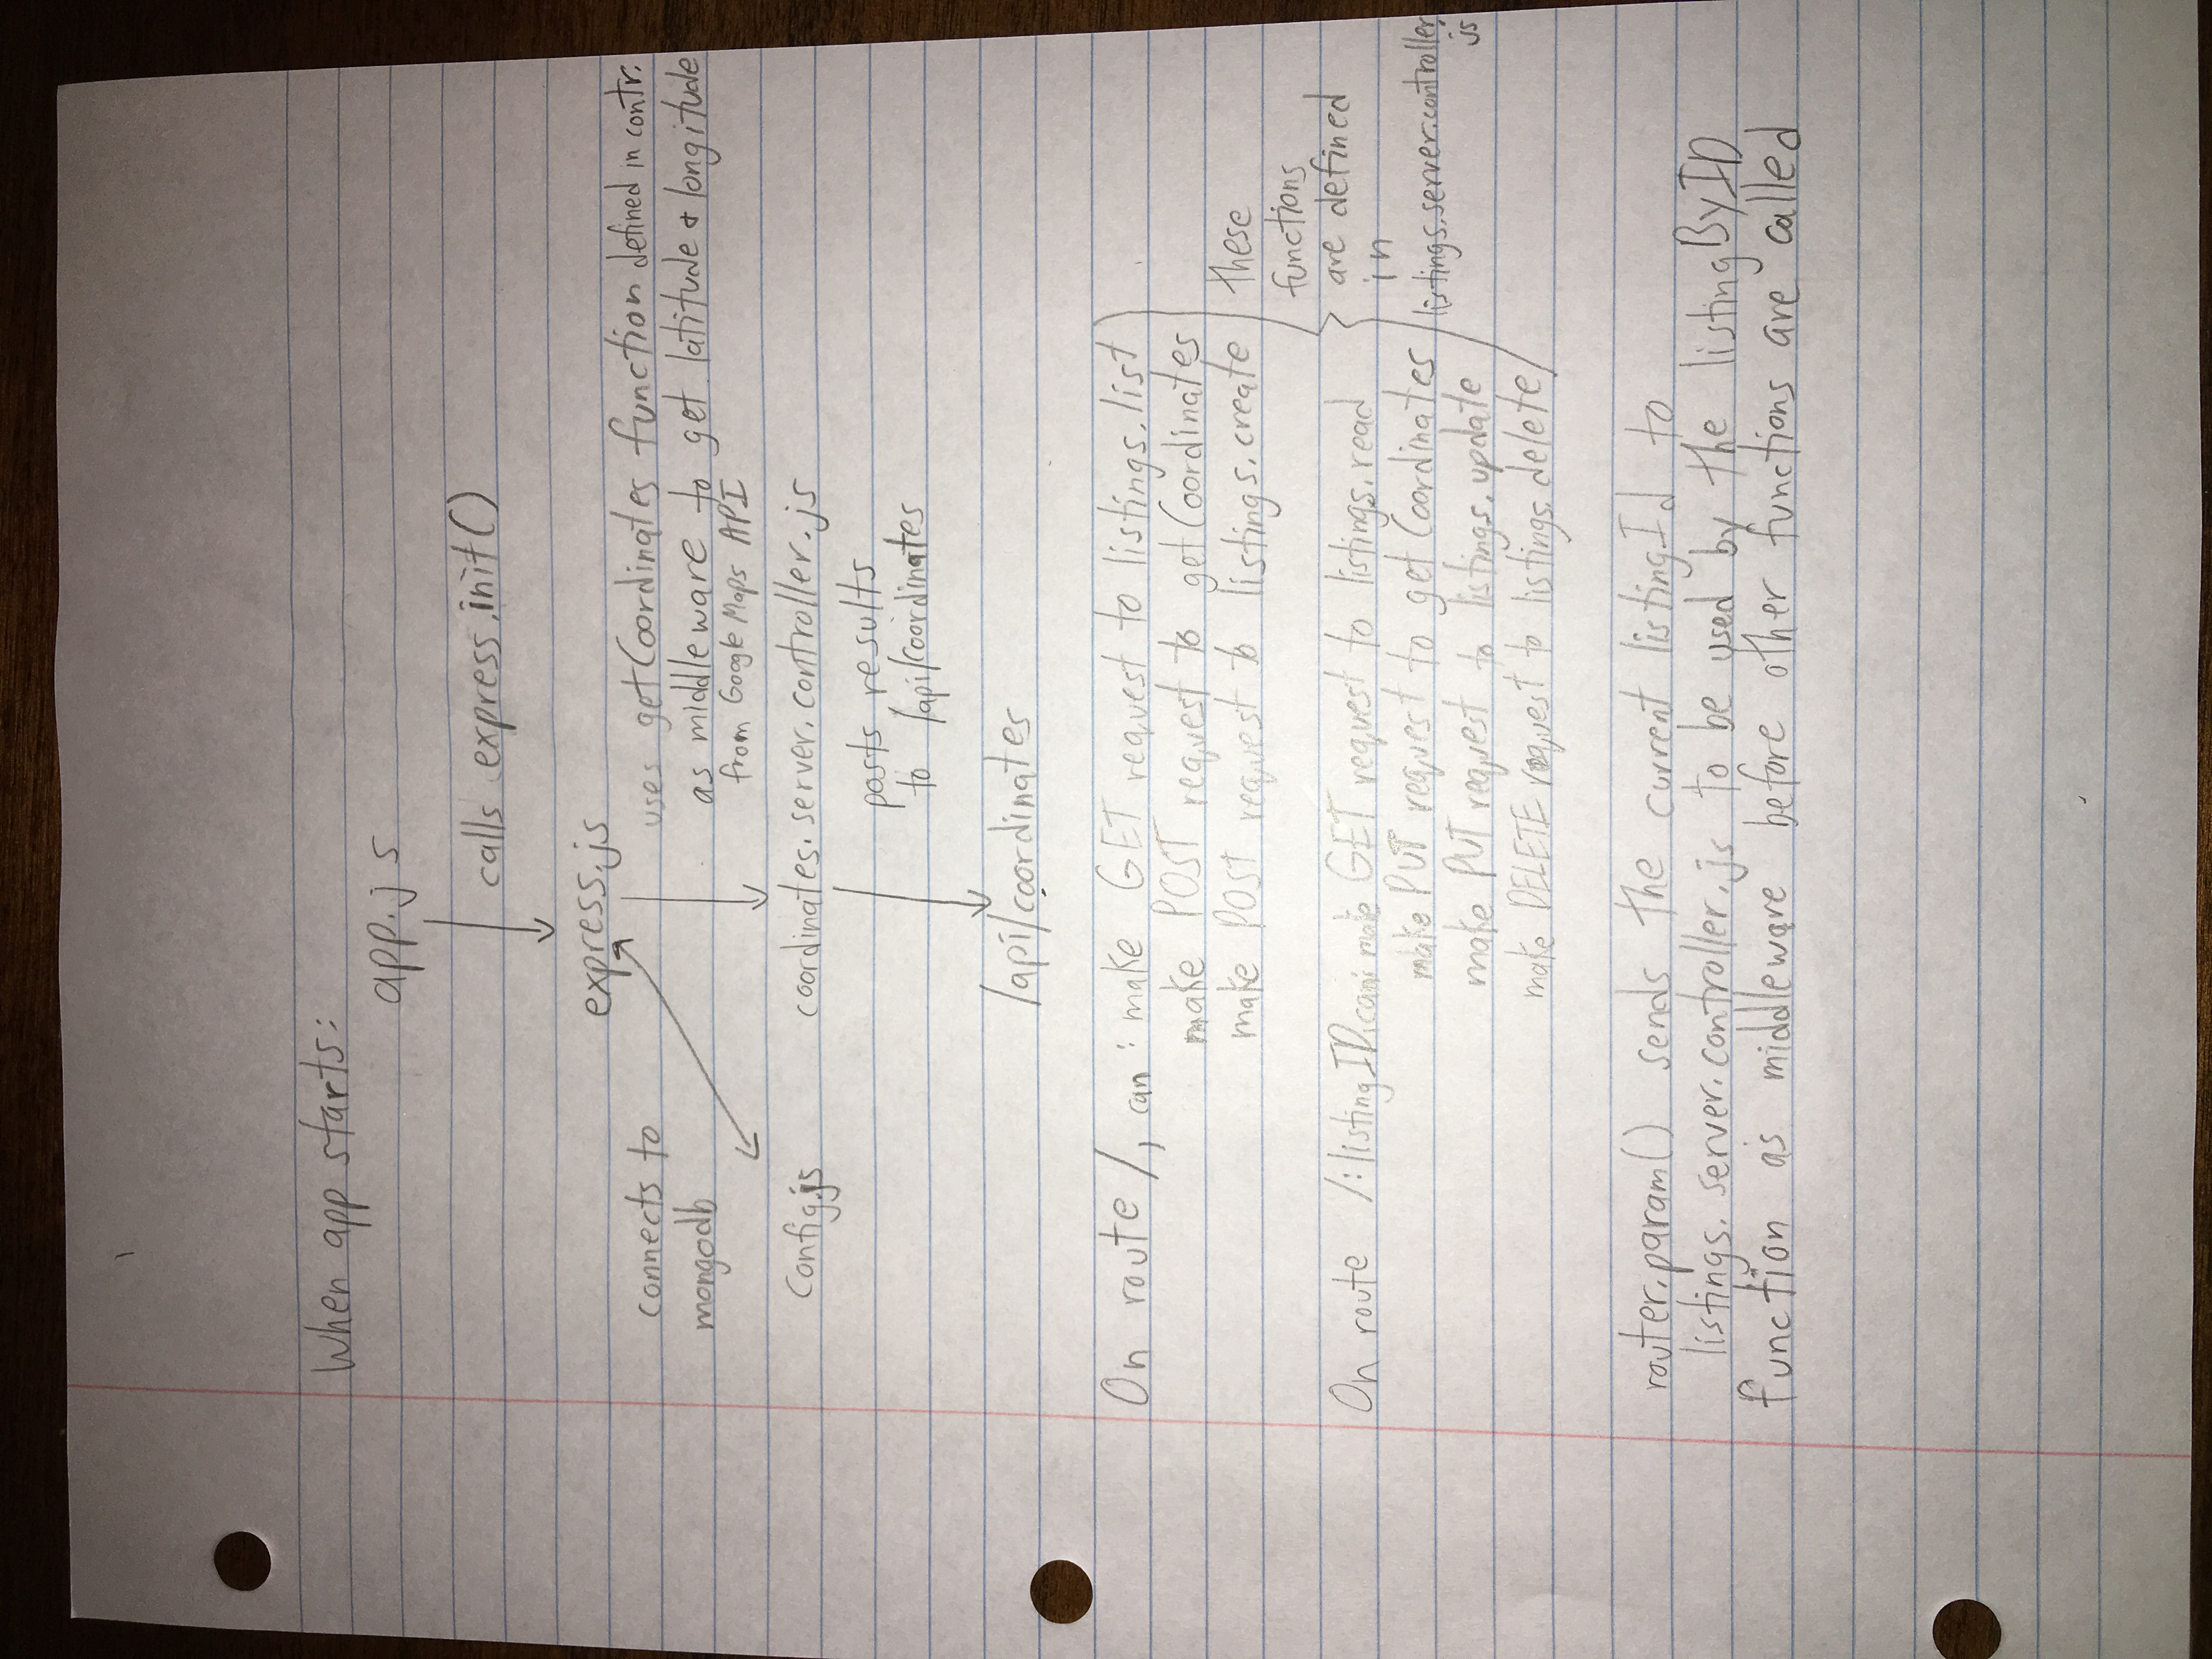 When app starts:
app.js
calls express.init()
express.js
connects to
mongodb
uses getCoordinates function defined in contr.
as middleware to get latitude & longitude
from Google Maps API
Config.js
coordinates.server.controller.js
posts results
to /api/coordinates
/api/coordinates
On route /, can: make GET request to listings.list
make POST request to getCoordinates
make POST request to listings.create
On route /:listingID, can: make GET request to listings.read
make PUT request to getCoordinates
make PUT request to listings.update
make DELETE request to listings.delete
these
functions
are defined
in
listings.server.controller.
js
router.param() sends the current listingId to
listings.server.controller.js to be used by the listingByID
function as middleware before other functions are called